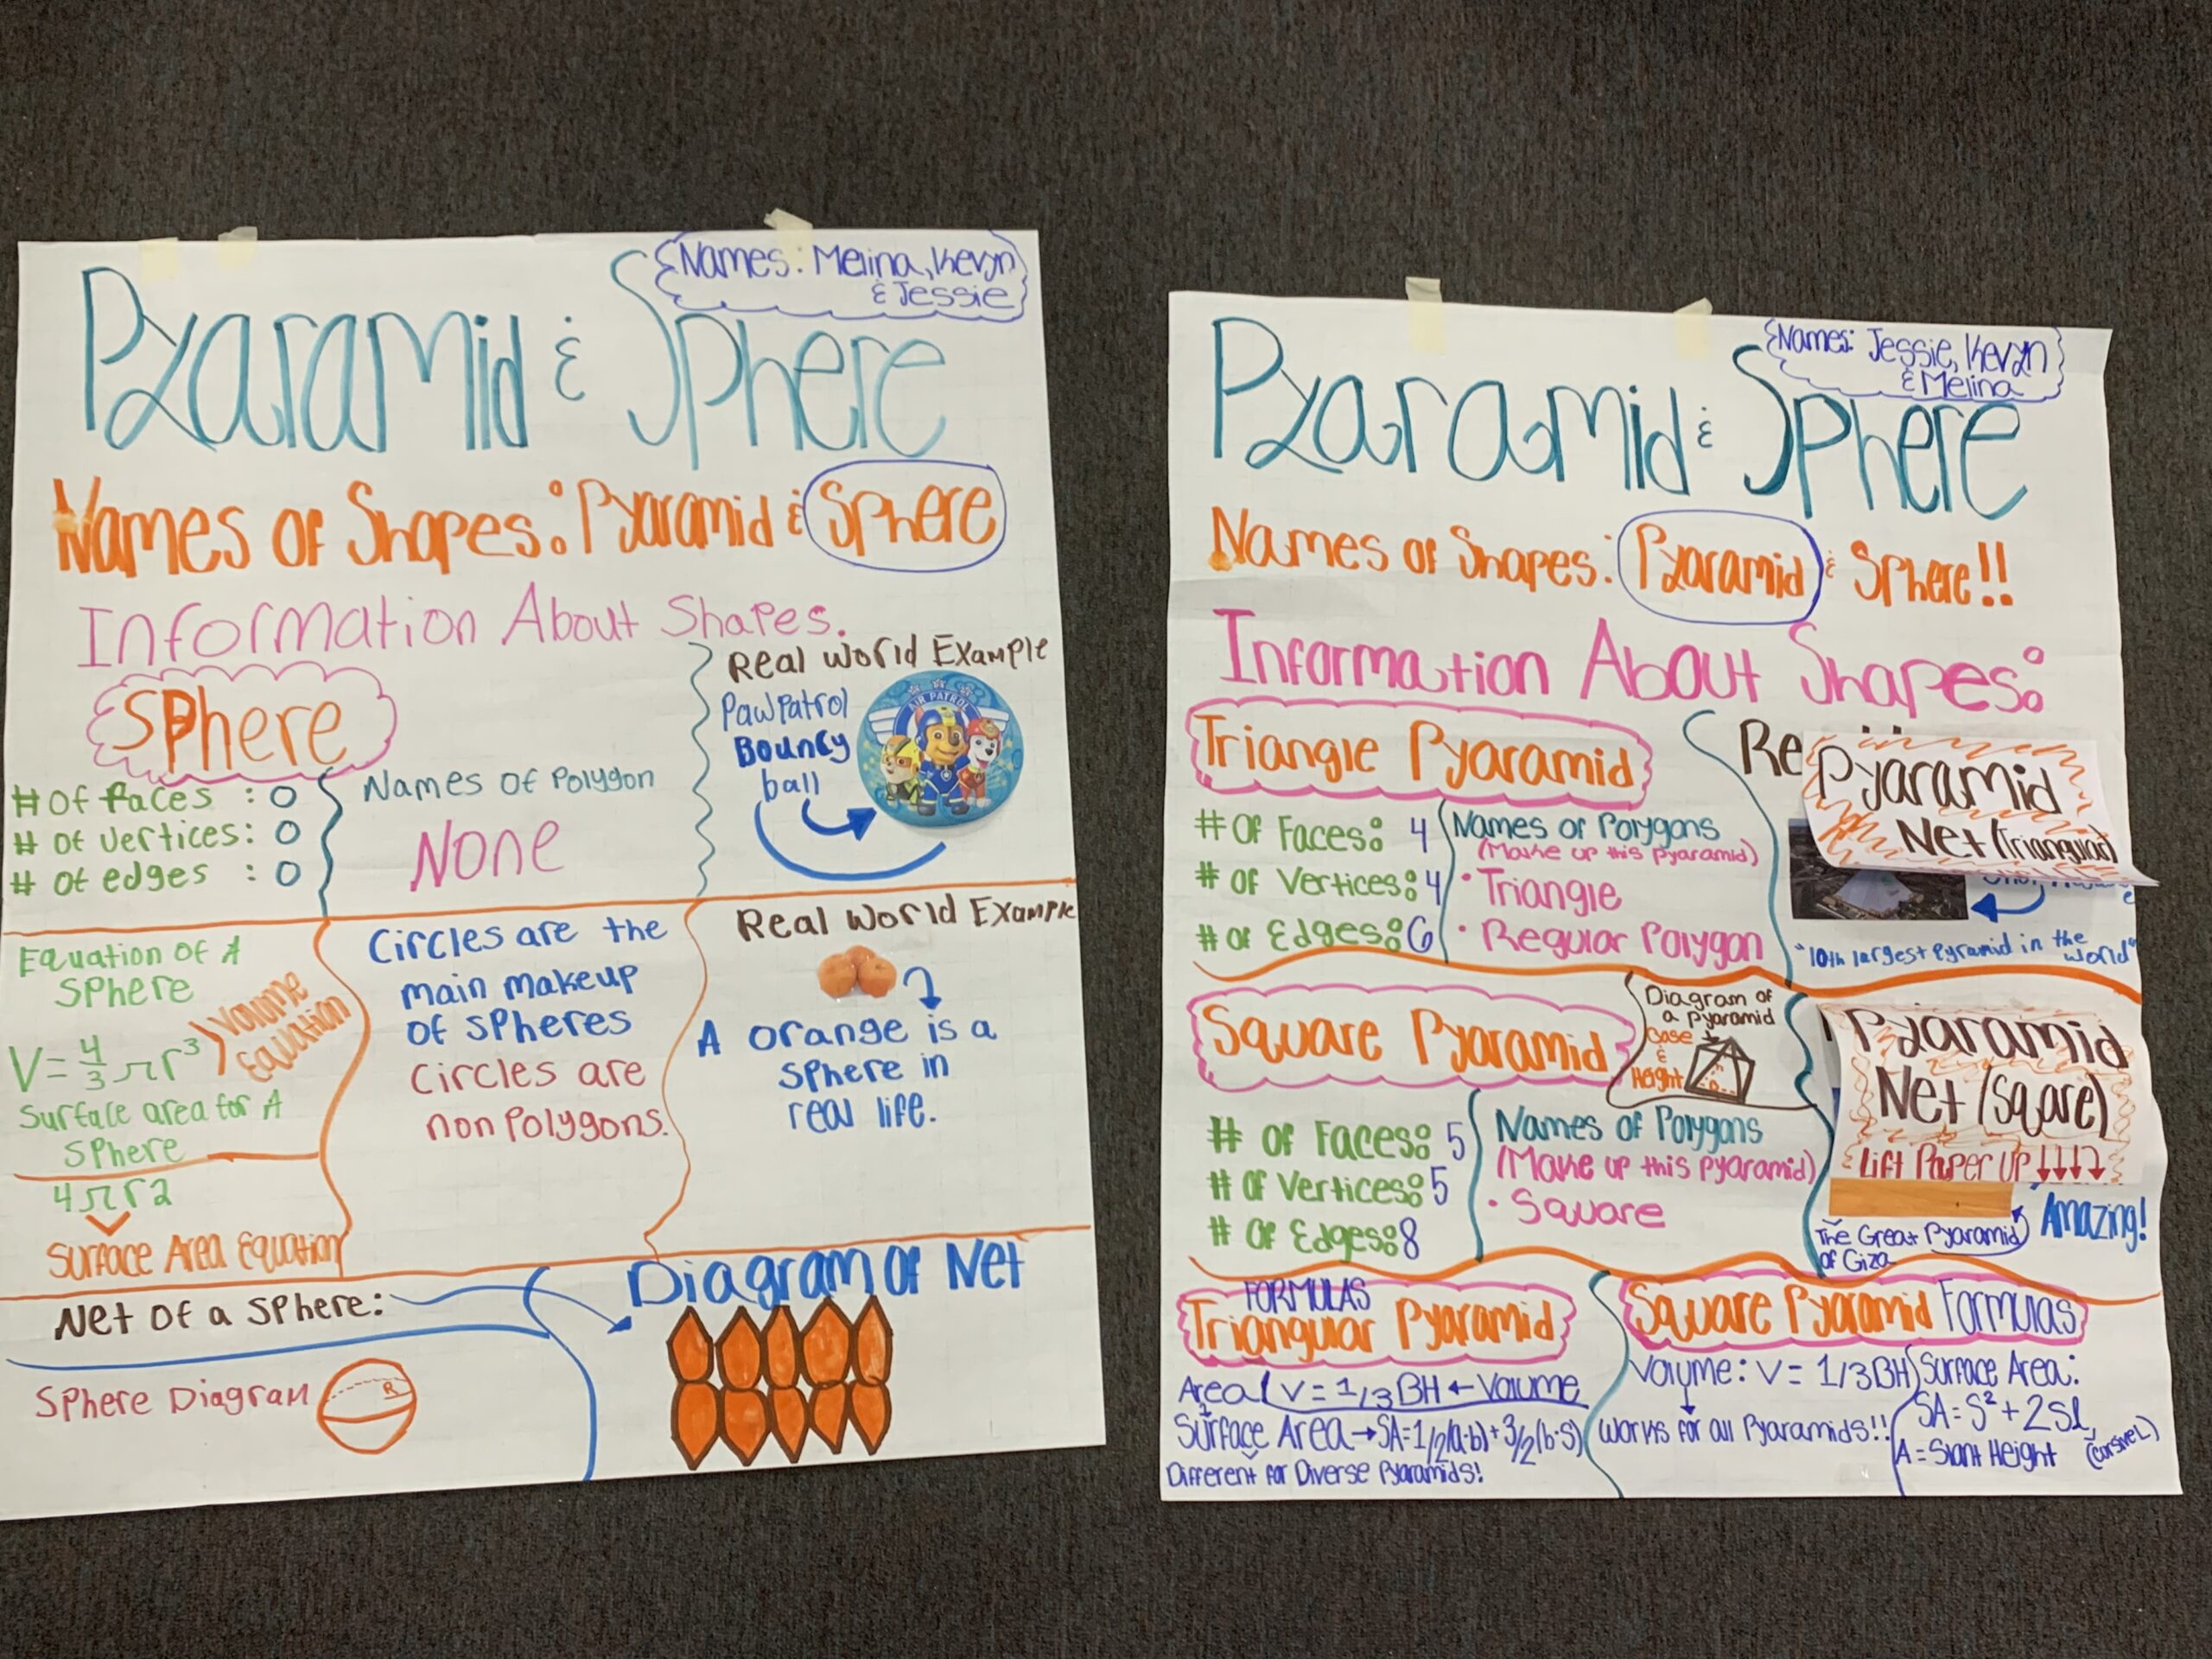 Names: Melina, Kevyn
& Jessie
Pyaramid & Sphere
Names of Shapes: Pyaramid & Sphere
Information About Shapes.
Sphere
# of faces : 0
# of vertices: 0
# of edges : 0
Names of Polygon
None
Real World Example
Paw Patrol
Bouncy
ball
AIR PATROL
Equation of A
Sphere
V = 4/3 πr³
Volume
Equation
Surface area for A
Sphere
4πr2
Surface Area Equation
Circles are the
main makeup
of spheres
Circles are
non polygons.
Real World Example
A orange is a
sphere in
real life.
Net of a sphere:
Diagram of Net
Sphere Diagram
R
Names: Jessie, Kevyn
& Melina
Pyaramid & Sphere
Names of Shapes: Pyaramid & Sphere!!
Information About Shapes:
Triangle Pyaramid
# of Faces: 4
# of Vertices: 4
# of Edges: 6
Names of Polygons
(Make up this pyaramid)
• Triangle
• Regular Polygon
Re
Pyaramid
Net (Triangular)
"10th largest Pyramid in the
world"
Square Pyaramid
Diagram of
a pyaramid
Base
&
Height
# of Faces: 5
# of Vertices: 5
# of Edges: 8
Names of Polygons
(Make up this pyaramid)
• Square
Pyaramid
Net (Sqare)
Lift Paper Up ↓↓↓↓
The Great Pyaramid
of Giza
Amazing!
FORMULAS
Triangular Pyaramid
Area V = 1/3 BH ← Volume
Surface Area → SA = 1/2(a·b) + 3/2(b·s)
Different for Diverse Pyaramids!
Square Pyaramid Formulas
Volume: V = 1/3 BH
Works for all Pyaramids!!
Surface Area:
SA = S² + 2Sl
(Cursive L)
A = Slant Height